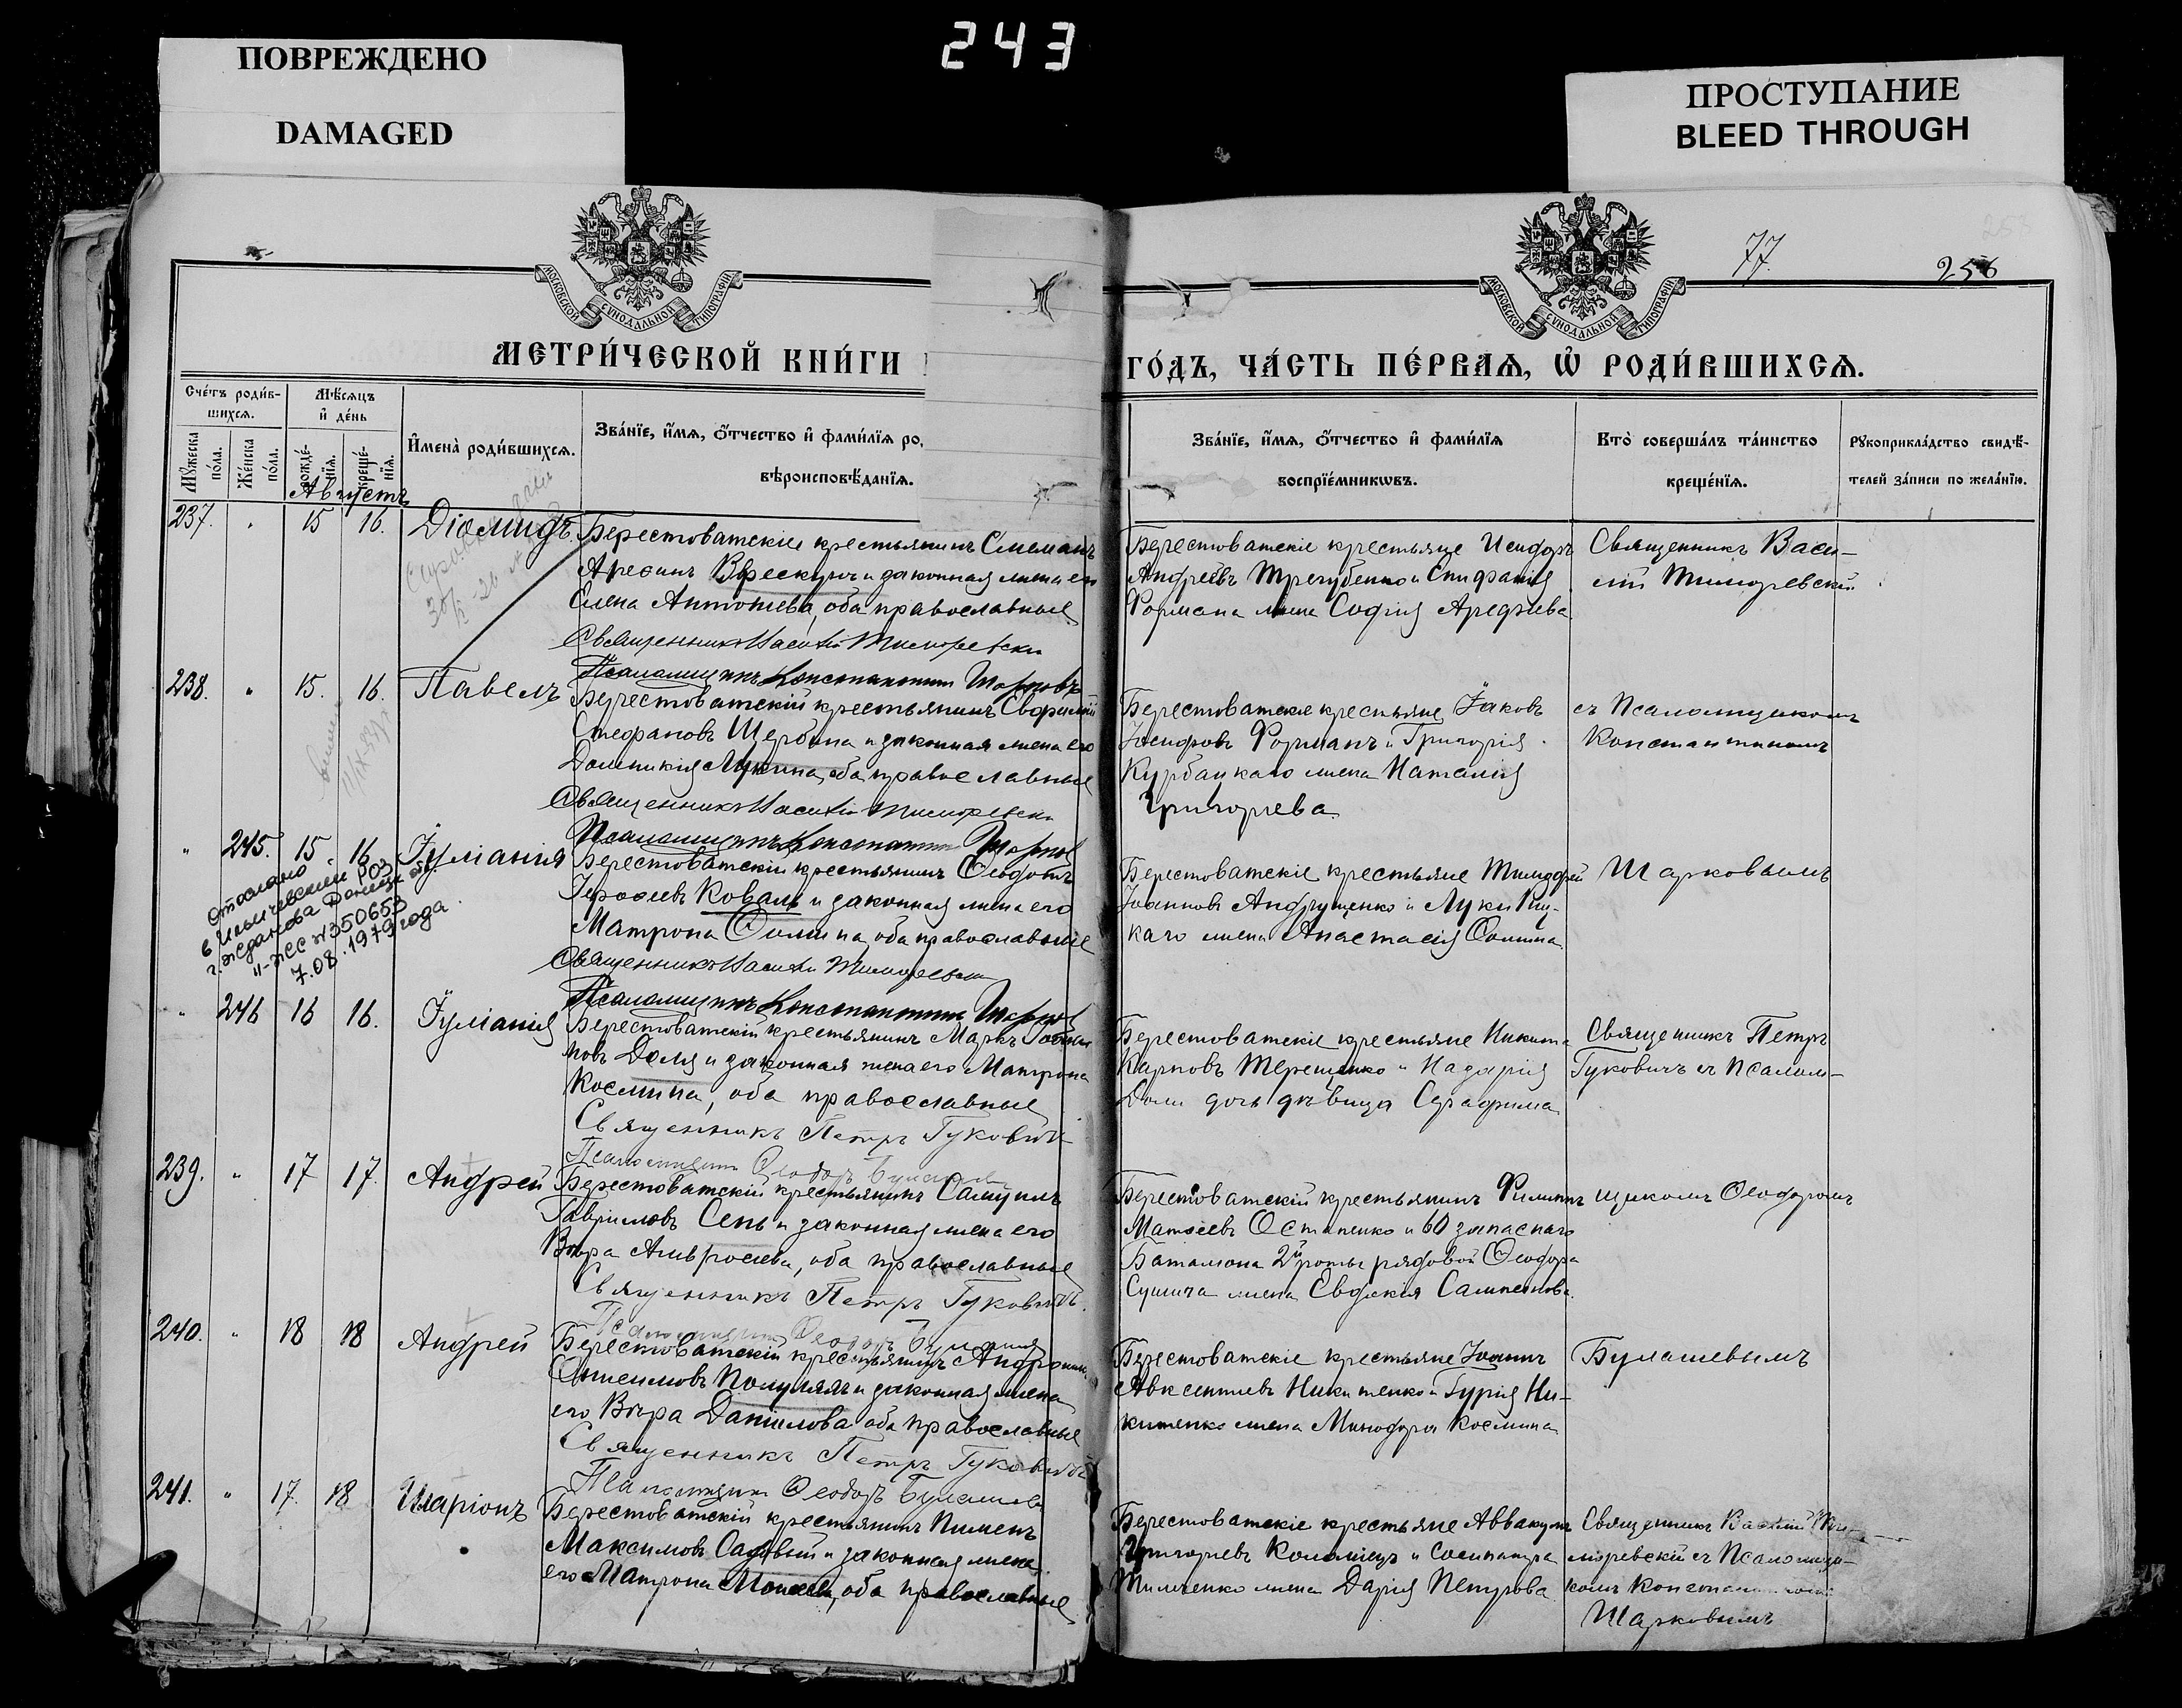 ПОВРЕЖДЕНО
DAMAGED
243
ПРОСТУПАНИЕ
BLEED THROUGH
77.
256
МОСКОВСКОЙ СѴНОДАЛЬНОЙ ТИПОГРАФІИ
МОСКОВСКОЙ СѴНОДАЛЬНОЙ ТИПОГРАФІИ
МЕТРИ́ЧЕСКОЙ КНИ́ГИ
ГО́ДЪ, ЧА́СТЬ ПЕ́РВАѦ, Ѡ҆ РОДИ́ВШИХСѦ.
Сче́тъ роди́в-
шихсѧ.
Мѣ́сѧцъ
и҆ де́нь
Мꙋ́жеска
по́ла.
Же́нска
по́ла.
рожде́-
нїѧ.
креще́-
нїѧ.
И҆мена̀ роди́вшихсѧ.
Зва́нїе, и҆́мѧ, ѻ҆́тчество и҆ фами́лїѧ ро
вѣроисповѣ́данїѧ.
Зва́нїе, и҆́мѧ, ѻ҆́тчество и҆ фами́лїѧ
воспрїе́мникѡвъ.
Кто̀ соверша́лъ та́инство
креще́нїѧ.
Рꙋкоприкла́дство свидѣ́-
телей за́писи по жела́нїю.
Августъ
237. " 15 16. Діомидъ.
Берестоватскій крестьянинъ
и законная жена его
Елена Антонiева, оба православные
Священникъ Василій Тиморевскій
Псаломщикъ Константинъ Шарковъ
Берестоватскіе крестьяне Исидоръ
Андреевъ Трегубенко и Епифанія
Формана жена Софія Арефиева
Священникъ Васи-
лій Тиморевскій
238. " 15. 16. Павелъ
Берестоватскій крестьянинъ Евфимій
Стефановъ Щербина и законная жена его
Домникія Лукина, оба православные
Священникъ Василій Тиморевскій
Псаломщикъ Константинъ Шарковъ
Берестоватскіе крестьяне Іаковъ
Іосифовъ Форманъ и Григорія
Курбацкаго жена Наталія
Григорьева
съ Псаломщикомъ
Константиномъ
" 245. 15 16 Іуліанія
отослано
в Ильичевский РОЗ
г. Жданова Донецк. обл.
II-ЖС №350653
7.08.1979 года.
Берестоватскій крестьянинъ Ѳеодотъ
Іерофеевъ Коваль и законная жена его
Матрона Ѳомина, оба православные
Священникъ Василій Тиморевскій
Псаломщикъ Константинъ Шарковъ
Берестоватскіе крестьяне Тимофей
Іоанновъ Андрущенко и Луки
каго жена Анастасія Ѳомина
Шарковымъ
" 246 16 16. Іуліанія
Берестоватскій крестьянинъ Маркъ
новъ Доля и законная жена его Матрона
Космина, оба православные
Священникъ Петръ Гуковичъ
Псаломщикъ Ѳеодоръ Булашевъ
Берестоватскіе крестьяне Никита
Карповъ Терещенко и Назарія
Доли дочь дѣвица Серафима
Священникъ Петръ
Гуковичъ съ Псалом-
239. " 17 17. Андрей
Берестоватскій крестьянинъ Самуилъ
Гавриловъ Сень и законная жена его
Вѣра Амвросіева, оба православные
Священникъ Петръ Гуковичъ.
Псаломщикъ Ѳеодоръ Булашевъ
Берестоватскій крестьянинъ Филиппъ
Матѳеевъ Остапенко и 60 запаснаго
Баталіона 2й роты рядовой Ѳеодора
жена Евдокія
щикомъ Ѳеодоромъ
240. " 18 18 Андрей
Берестоватскій крестьянинъ Андроникъ
и законная жена
его Вѣра Даніилова оба православные
Священникъ Петръ Гуковичъ
Псаломщикъ Ѳеодоръ Булашевъ
Берестоватскіе крестьяне Іоаннъ
Авксентіевъ Никитенко и Гурія Ни-
китенко жена Минодора Космина
Булашевымъ
241. " 17. 18 Иларіонъ
Берестоватскій крестьянинъ Пименъ
Максимовъ Садовый и законная жена
его Матрона оба православные
Берестоватскіе крестьяне Аввакумъ
Григорьевъ Коломіецъ и Сосипатра
Тимченко жена Дарія Петрова
Священникъ Василій Ти-
моревскій съ Псаломщи-
комъ
Шарковымъ